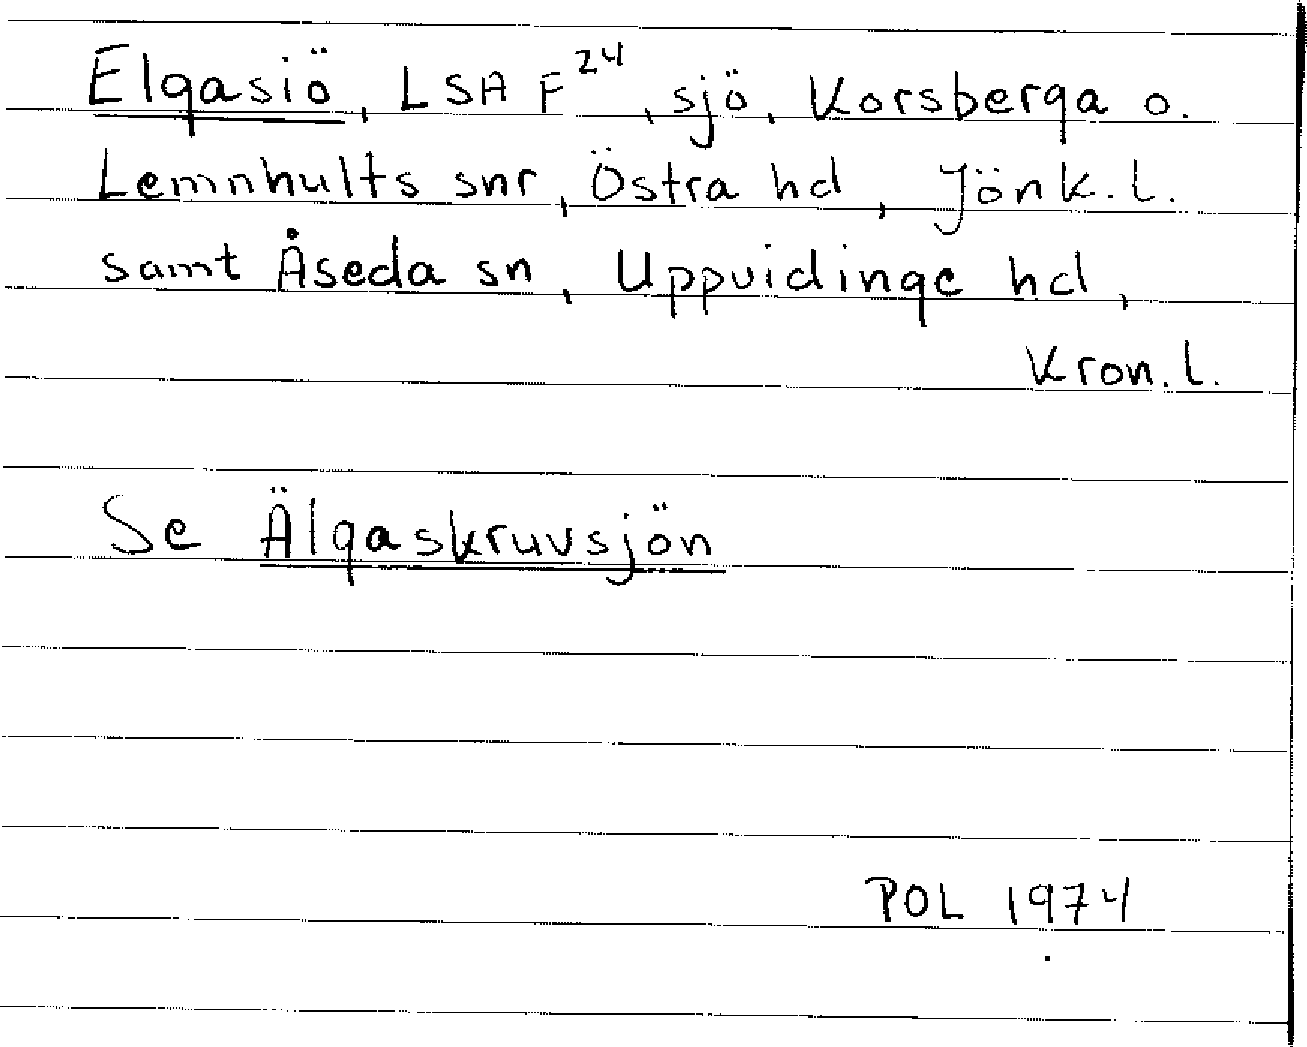 Elgasiö, LSA F²⁴, sjö, Korsberga o.
Lemnhults snr, Östra hd, Jönk. l.
samt Åseda sn, Uppvidinge hd,
Kron. l.
Se Älgaskruvsjön
POL 1974